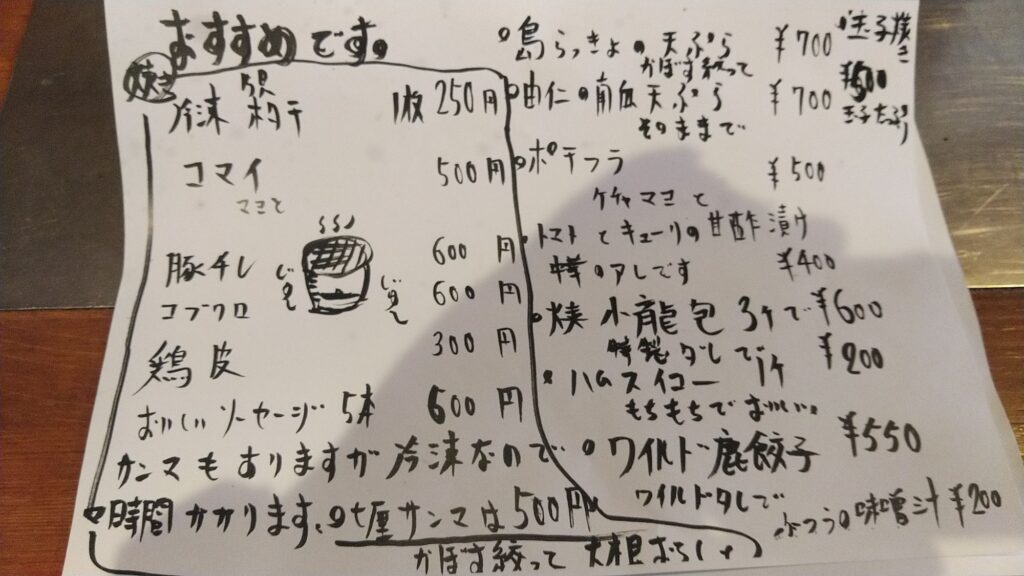 おすすめです。
焼き
冷凍 ホタテ 1枚 250円
コマイ 500円
マヨと
豚チレ 600円
コブクロ 600円
鶏皮 300円
おいしいソーセージ 5本 600円
サンマもありますが冷凍なので
時間かかります、サンマは500円
かぼす絞って 大根おろし
島らっきょの天ぷら ¥700
かぼす絞って
由仁の南瓜天ぷら ¥700
そのままで
ポテフラ ¥500
ケチャマヨと
トマトとキューリの甘酢漬け
のアレです ¥400
小龍包 3ケで ¥600
特製ダレで
ハムスイコー 1ケ ¥200
もちもちでおいしい。
ワイルド鹿餃子 ¥550
ワイルドタレで
ふつうの味噌汁 ¥200
玉子焼き
¥500